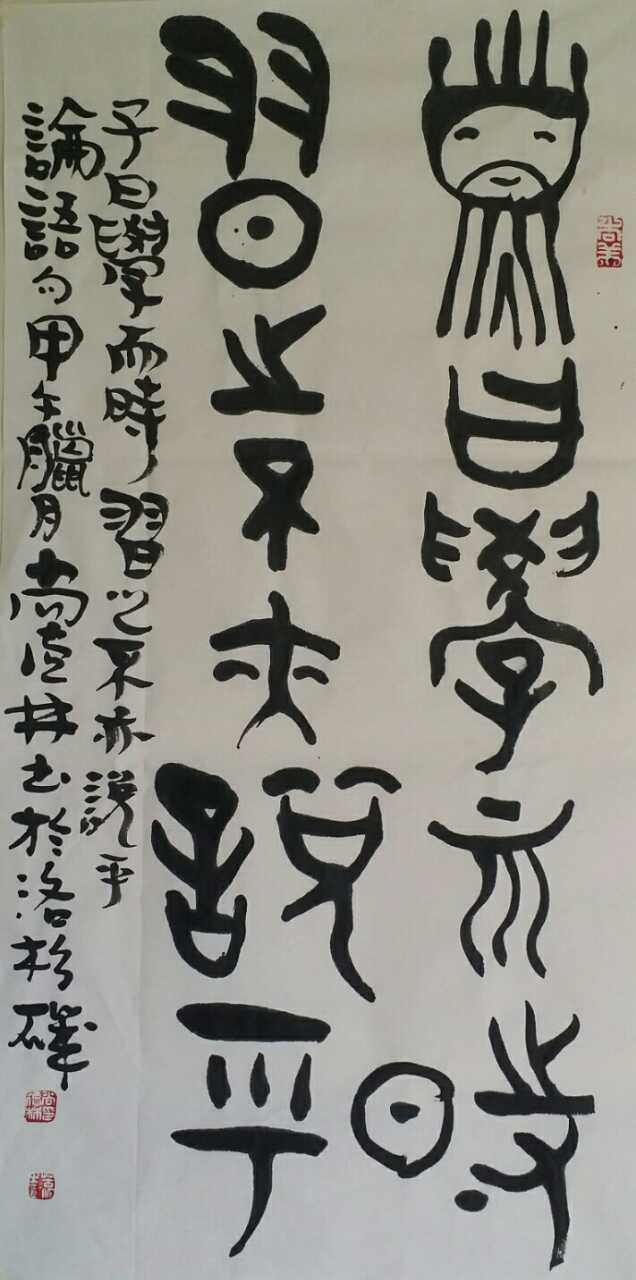 子曰學而時
習之不亦說乎
子曰學而時習之不亦說乎
論語句甲午臘月尚林书於洛杉磯